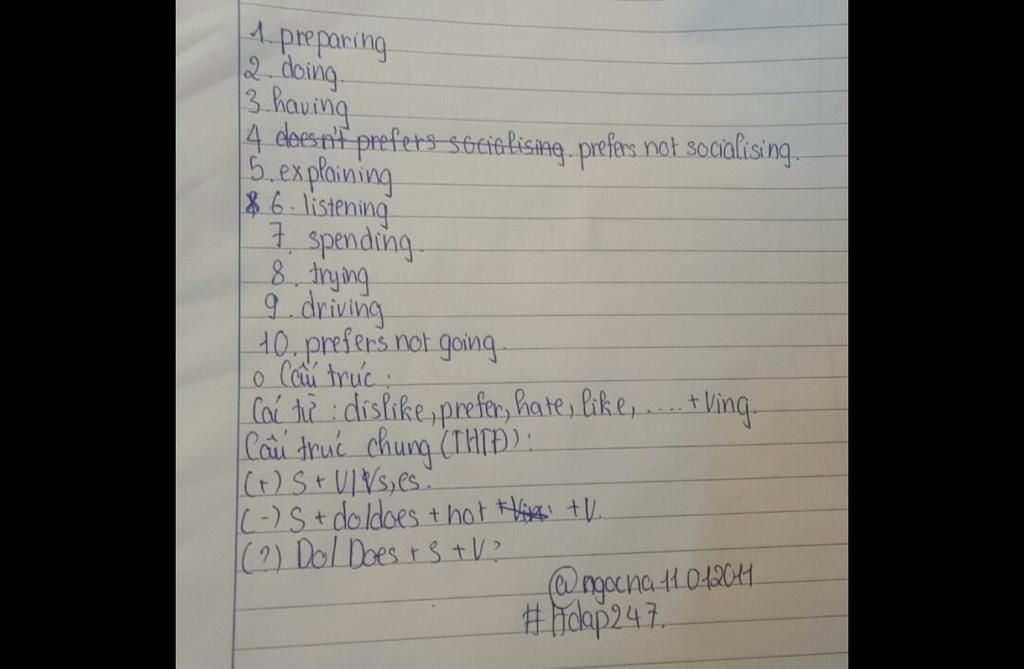 1. preparing
2. doing.
3. having
4 doesn't prefers socialising. prefers not socialising.
5. explaining
6. listening
7. spending.
8. trying
9. driving
10. prefers not going.
o Cấu trúc:
Các từ: dislike, prefer, hate, like, ..... + Ving.
Cấu trúc chung (THTĐ):
(+) S + V/Vs,es.
(-) S + do/does + not + Ving + V.
(?) Do/Does + S + V?
@ngocha11012011
#hdap247.